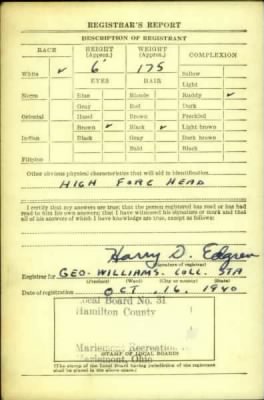 REGISTRAR'S REPORT
DESCRIPTION OF REGISTRANT
RACE HEIGHT (Approx.) WEIGHT (Approx.) COMPLEXION
White ✓ 6' 175 Sallow
EYES HAIR Light
Negro Blue Blonde Ruddy ✓
Gray Red Dark
Oriental Hazel Brown Freckled
Brown ✓ Black ✓ Light brown
Indian Black Gray Dark brown
Bald Black
Filipino
Other obvious physical characteristics that will aid in identification
HIGH FORE HEAD
I certify that my answers are true; that the person registered has read or has had
read to him his own answers; that I have witnessed his signature or mark and that
all of his answers of which I have knowledge are true, except as follows:
Harry D. Edgren
(Signature of registrar)
Registrar for GEO. WILLIAMS. COLL. STA
(Precinct) (Ward) (City or county) (State)
Date of registration OCT. 16. 1940
Local Board No. 31
Hamilton County
Mariemont Recreation
Mariemont, Ohio
(STAMP OF LOCAL BOARD)
(The stamp of the Local Board having jurisdiction of the registrant
shall be placed in the above space.)